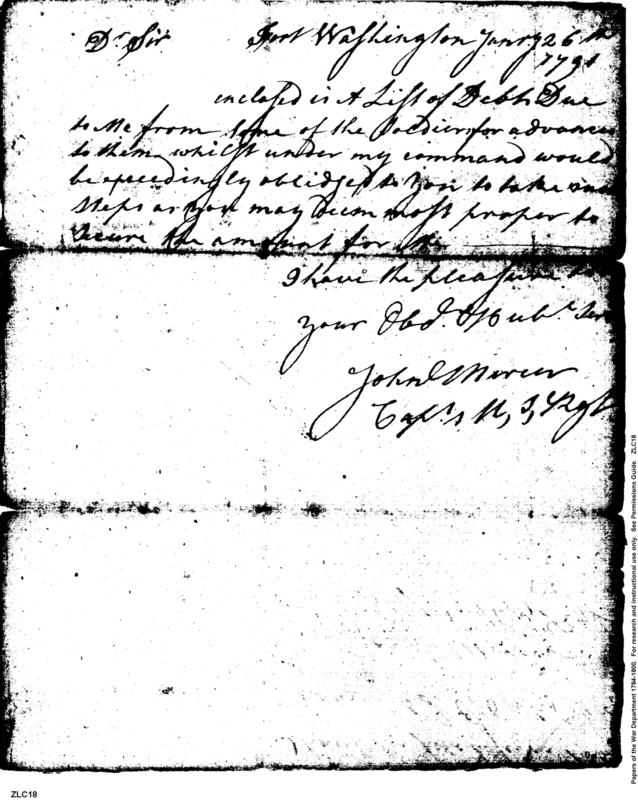 Dr Sir Fort Washington Janry 26th
1791
enclosed is A List of Debts Due
to Me from some of the Soldiers for advances
to them whilst under my command would
be exceedingly oblidged to You to take such
steps as you may deem most proper to
secure the amount for Me
I have the pleasure to
your Obd. Hub.l Ser
John Mercer
Capt. 1 U, S, Regt
Papers of the War Department 1784-1800. For research and instructional use only. See Permissions Guide. ZLC18
ZLC18